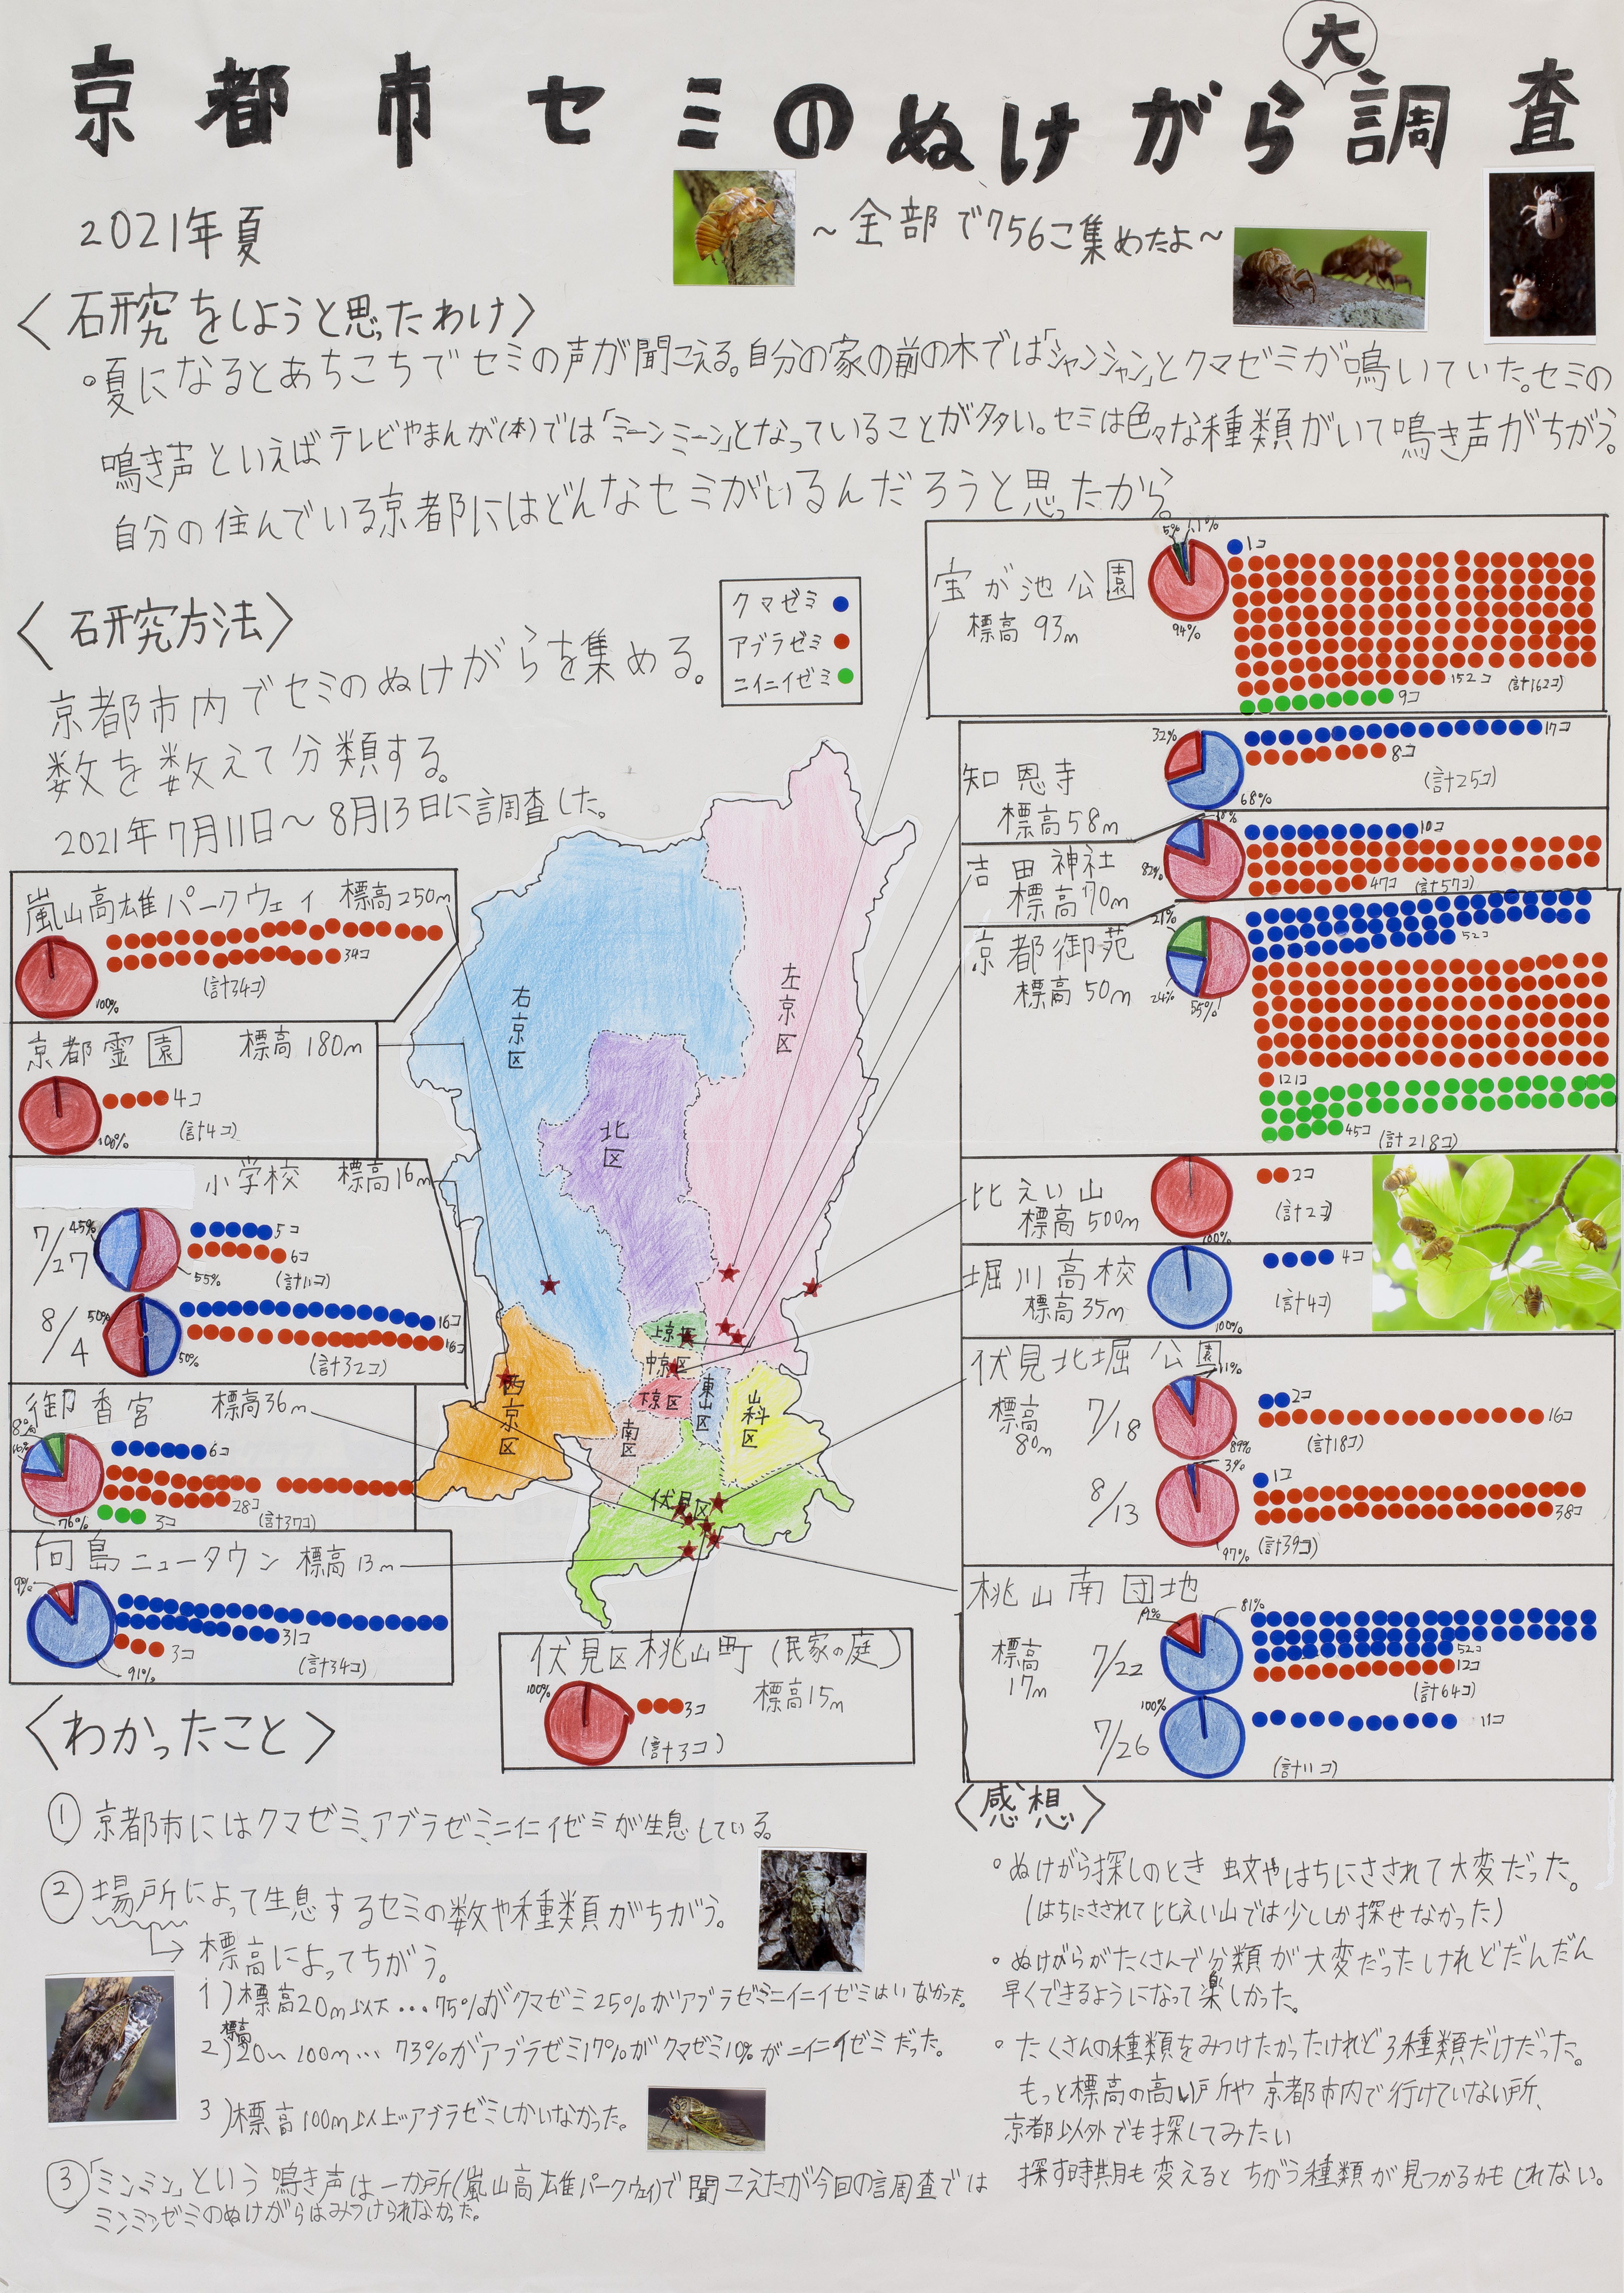 大
京都市セミのぬけがら調査
2021年夏
～全部で756コ集めたよ～
〈研究をしようと思ったわけ〉
○夏になるとあちこちでセミの声が聞こえる。自分の家の前の木では「シャンシャン」とクマゼミが鳴いていた。セミの
鳴き声といえばテレビやまんが(本)では「ミーンミーン」となっていることが多い。セミは色々な種類がいて鳴き声がちがう。
自分の住んでいる京都にはどんなセミがいるんだろうと思ったから。
〈研究方法〉
京都市内でセミのぬけがらを集める。
数を数えて分類する。
2021年7月11日～8月13日に調査した。
クマゼミ
アブラゼミ
ニイニイゼミ
宝が池公園
標高93m
5%
1%
94%
1コ
152コ
(計162コ)
9コ
知恩寺
標高58m
32%
68%
17コ
8コ
(計25コ)
吉田神社
標高70m
18%
82%
10コ
47コ
(計57コ)
京都御苑
標高50m
21%
24%
55%
52コ
121コ
45コ
(計218コ)
比えい山
標高500m
100%
2コ
(計2コ)
堀川高校
標高35m
100%
4コ
(計4コ)
伏見北堀公園
標高
80m
7/18
11%
89%
2コ
16コ
(計18コ)
8/13
3%
97%
1コ
38コ
(計39コ)
桃山南団地
標高
17m
7/22
19%
81%
52コ
12コ
(計64コ)
7/26
100%
11コ
(計11コ)
嵐山高雄パークウェイ 標高250m
100%
34コ
(計34コ)
京都霊園 標高180m
100%
4コ
(計4コ)
小学校 標高16m
7/27
45%
55%
5コ
6コ
(計11コ)
8/4
50%
50%
16コ
16コ
(計32コ)
御香宮 標高36m
8%
16%
76%
6コ
28コ
3コ
(計37コ)
向島ニュータウン 標高13m
9%
91%
31コ
3コ
(計34コ)
伏見区桃山町(民家の庭)
標高15m
100%
3コ
(計3コ)
右京区
左京区
北区
上京区
中京区
西京区
東山区
山科区
南区
伏見区
〈わかったこと〉
① 京都市にはクマゼミ、アブラゼミ、ニイニイゼミが生息している。
② 場所によって生息するセミの数や種類がちがう。
→標高によってちがう。
1)標高20m以下…75%がクマゼミ25%がアブラゼミニイニイゼミはいなかった。
標高
2)20～100m…73%がアブラゼミ17%がクマゼミ10%がニイニイゼミだった。
3)標高100m以上…アブラゼミしかいなかった。
③「ミンミン」という鳴き声は一か所(嵐山高雄パークウェイ)で聞こえたが今回の調査では
ミンミンゼミのぬけがらはみつけられなかった。
〈感想〉
○ぬけがら探しのとき蚊やはちにさされて大変だった。
(はちにさされて比えい山では少ししか探せなかった)
○ぬけがらがたくさんで分類が大変だったけれどだんだん
早くできるようになって楽しかった。
○たくさんの種類をみつけたかったけれど3種類だけだった。
もっと標高の高い所や京都市内で行けていない所、
京都以外でも探してみたい
探す時期も変えるとちがう種類が見つかるかもしれない。